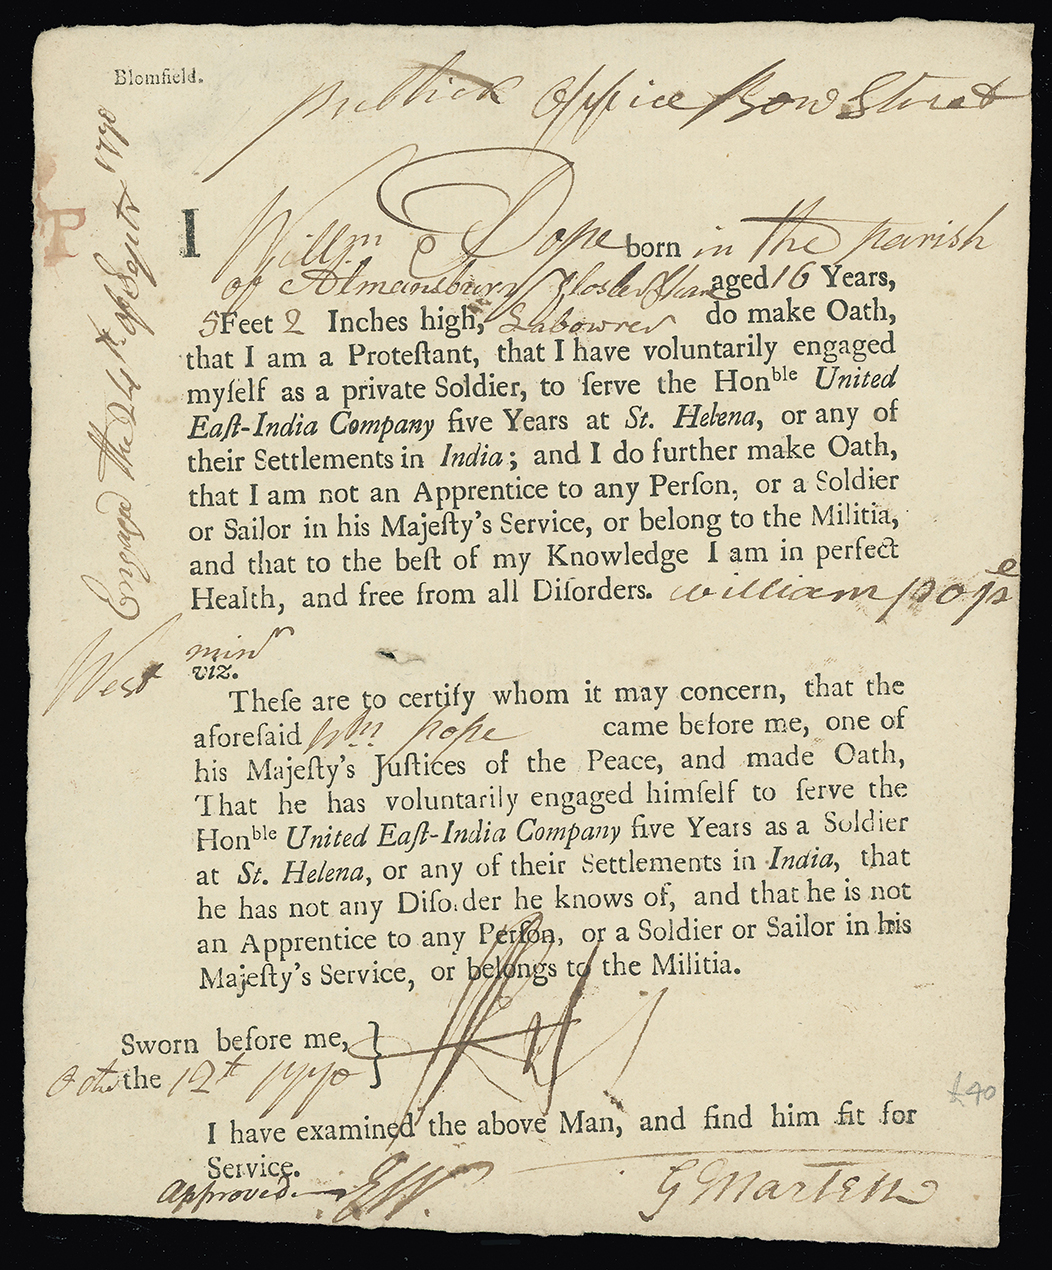 Blomfield.
publick Office Bow Street
Engaged the 24th of Septr 1770
P
I Willm Pope born in the parish
of Almansbury Glostershare aged 16 Years,
5 Feet 2 Inches high, Labowrer do make Oath,
that I am a Proteſtant, that I have voluntarily engaged
myſelf as a private Soldier, to ſerve the Honble United
Eaſt-India Company five Years at St. Helena, or any of
their Settlements in India; and I do further make Oath,
that I am not an Apprentice to any Perſon, or a Soldier
or Sailor in his Majeſty's Service, or belong to the Militia,
and that to the beſt of my Knowledge I am in perfect
Health, and free from all Diſorders. william pope
West minr
viz.
Theſe are to certify whom it may concern, that the
aforeſaid Wm pope came before me, one of
his Majeſty's Juſtices of the Peace, and made Oath,
That he has voluntarily engaged himſelf to ſerve the
Honble United Eaſt-India Company five Years as a Soldier
at St. Helena, or any of their Settlements in India, that
he has not any Diſorder he knows of, and that he is not
an Apprentice to any Perſon, or a Soldier or Sailor in his
Majeſty's Service, or belongs to the Militia.
Sworn before me,
Octr the 12th 1770
£40
I have examined the above Man, and find him fit for
Service.
approved EW.
G Martin